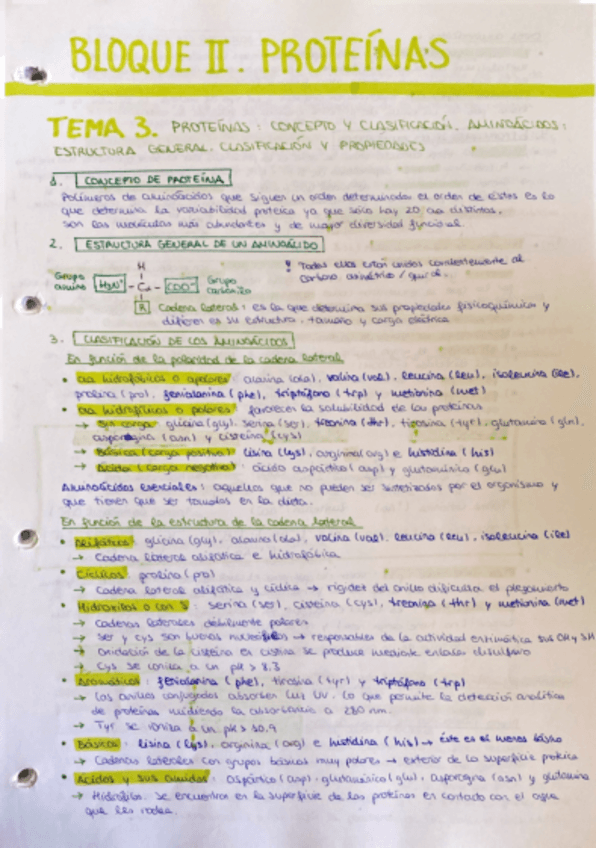 BLOQUE II. PROTEÍNAS
TEMA 3. PROTEÍNAS: CONCEPTO Y CLASIFICACIÓN. AMINOÁCIDOS:
ESTRUCTURA GENERAL. CLASIFICACIÓN Y PROPIEDADES
1. CONCEPTO DE PROTEÍNA
Polímeros de aminoácidos que siguen un orden determinado el orden de éstos es lo
que determina la variabilidad proteica ya que solo hay 20 aa distintos.
son las moléculas más abundantes y de mayor diversidad funcional.
2. ESTRUCTURA GENERAL DE UN AMINOÁCIDO
H
Todos ellos están unidos covalentemente al
carbono asimétrico / quiral.
Grupo amino H3N+ - Cα - COO- Grupo carboxilo
R Cadena lateral: es la que determina sus propiedades fisicoquímicas y
difieren es su estructura, tamaño y carga eléctrica
3. CLASIFICACIÓN DE LOS AMINOÁCIDOS
En función de la polaridad de la cadena lateral
• aa hidrofóbicos o apolares: alanina (ala), valina (val), leucina (leu), isoleucina (ile),
prolina (pro), fenialanina (phe), triptófano (trp) y metionina (met)
• aa hidrofílicos o polares: favorecen la solubilidad de las proteínas
→ Sin carga: glicina (gly), serina (ser), treonina (thr), tirosina (tyr), glutamina (gln),
asparagina (asn) y cisteína (cys)
→ Básica (carga positiva): lisina (lys), arginina (arg) e histidina (his)
→ Ácida (carga negativa): ácido aspártico (asp) y glutamínico (glu)
Aminoácidos esenciales: aquellos que no pueden ser sintetizados por el organismo y
que tienen que ser tomados en la dieta.
En función de la estructura de la cadena lateral
• Alifáticos: glicina (gly), alanina (ala), valina (val), leucina (leu), isoleucina (ile)
→ Cadena lateral alifática e hidrofóbica
• Cíclicos: prolina (pro)
→ Cadena lateral alifática y cíclica → rigidez del anillo dificulta el plegamiento
• Hidroxilos o con S: serina (ser), cisteína (cys), treonina (thr) y metionina (met)
→ Cadenas laterales débilmente polares
→ Ser y cys son buenos nucleófilos → responsables de la actividad enzimática sus OH y SH
→ Oxidación de la cisteína en cistina se produce mediante enlaces disulfuro
→ Cys se ioniza a un pH > 8.3
• Aromáticos: fenialanina (phe), tirosina (tyr) y triptófano (trp)
→ Los anillos conjugados absorben luz UV. Lo que permite la detección analítica
de proteínas midiendo la absorbancia a 280 nm.
→ Tyr se ioniza a un pH > 10.9
• Básicos: lisina (lys), arginina (arg) e histidina (his) → éste es el menos básico
→ Cadenas laterales con grupos básicos muy polares → exterior de la superficie proteica
• Ácidos y sus amidas: aspártico (asp), glutamínico (glu), asparagina (asn) y glutamina
→ Hidrófilos. Se encuentran en la superficie de las proteínas en contacto con el agua
que las rodea.